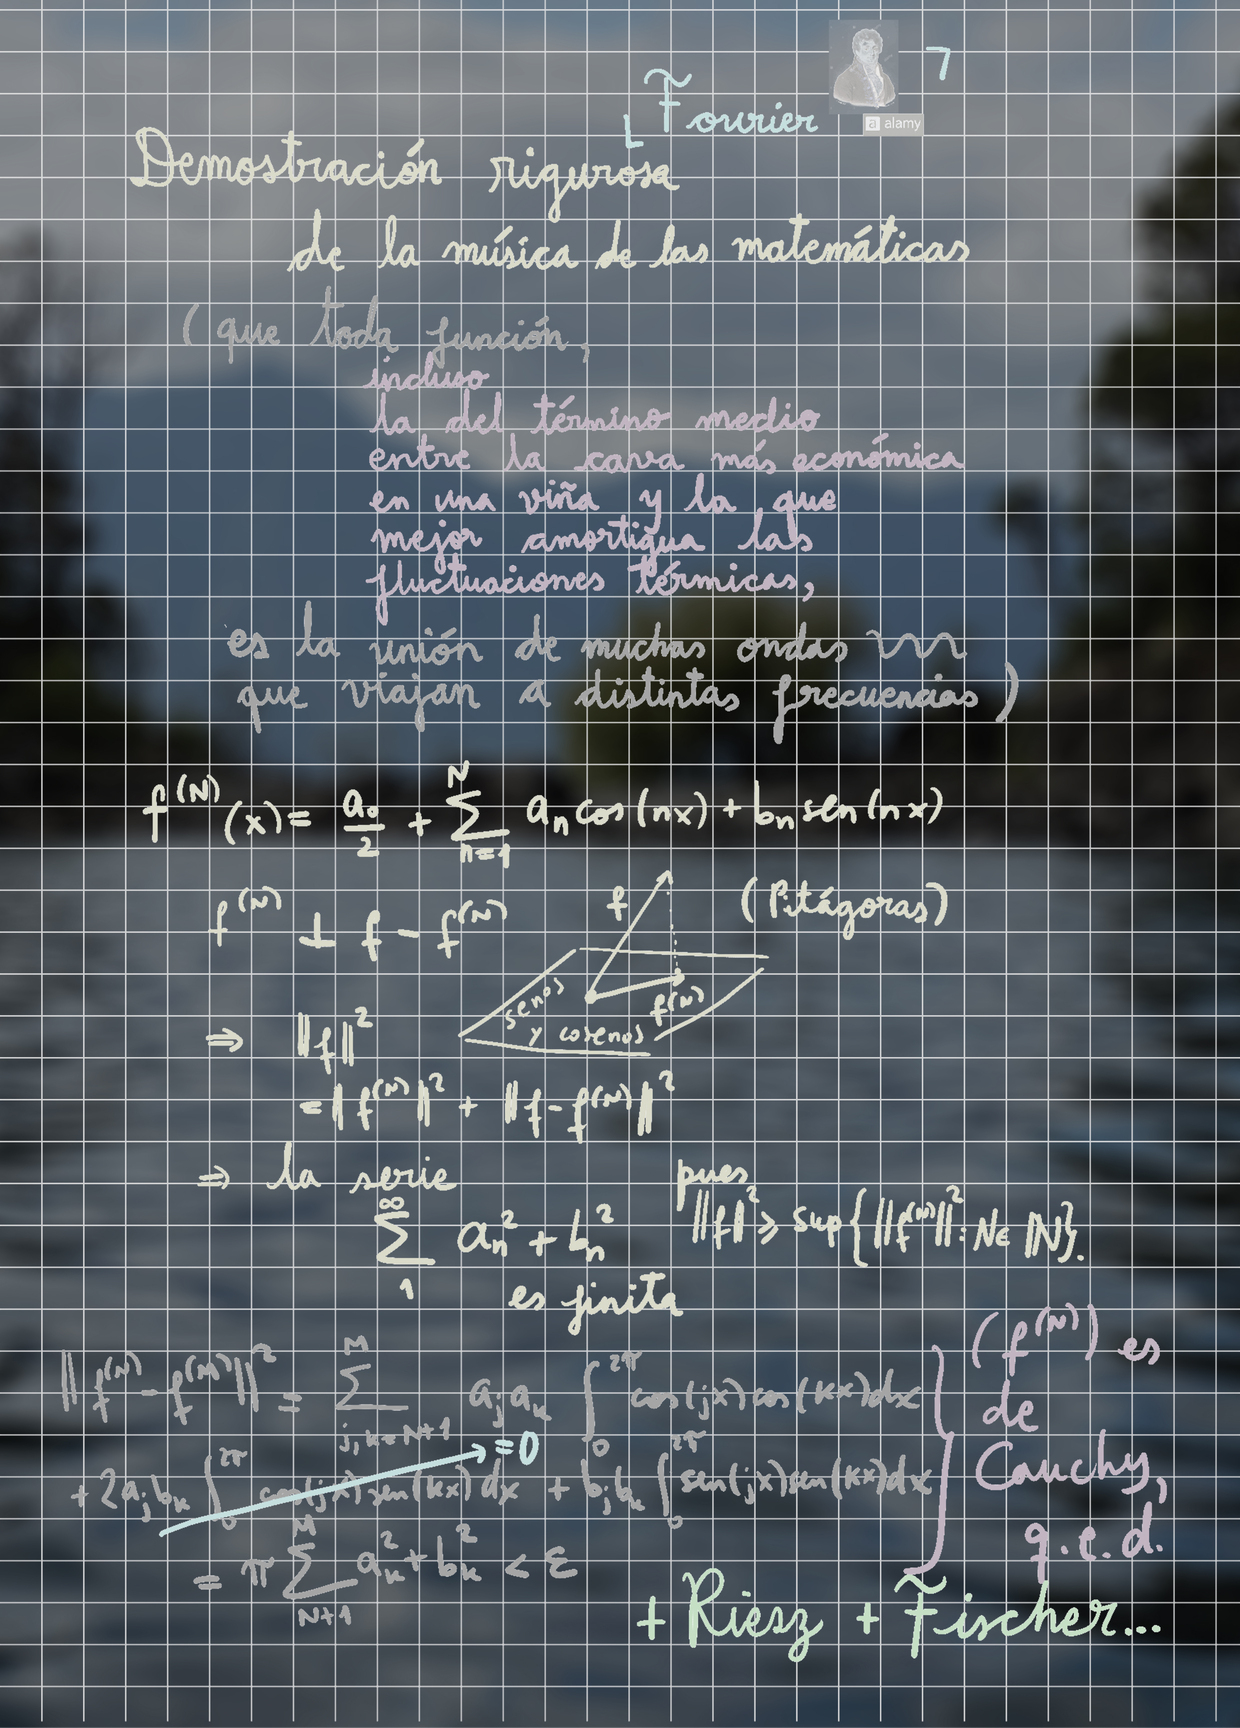 Fourier
a alamy
Demostración rigurosa
de la música de las matemáticas
(que toda función,
incluso
la del término medio
entre la cava más económica
en una viña y la que
mejor amortigua las
fluctuaciones térmicas,
es la unión de muchas ondas
que viajan a distintas frecuencias)
f^(N)(x) = a₀/2 + Σ_{n=1}^{N} aₙ cos(nx) + bₙ sen(nx)
f^(N) ⊥ f - f^(N)
f
(Pitágoras)
senos
y cosenos
f^(N)
⇒ ‖f‖²
= ‖f^(N)‖² + ‖f - f^(N)‖²
⇒ la serie
Σ_1^∞ aₙ² + bₙ²
es finita
pues
‖f‖² ≥ sup{‖f^(N)‖² : N ∈ ℕ}.
‖f^(N) - f^(M)‖² = Σ_{j,k=N+1}^{M} a_j a_k ∫_0^{2π} cos(jx)cos(kx)dx
+ 2a_j b_k ∫_0^{2π} cos(jx)sen(kx)dx + b_j b_k ∫_0^{2π} sen(jx)sen(kx)dx
=0
= π Σ_{N+1}^{M} a_k² + b_k² < ε
(f^(N)) es
de
Cauchy,
q.e.d.
+ Riesz + Fischer...